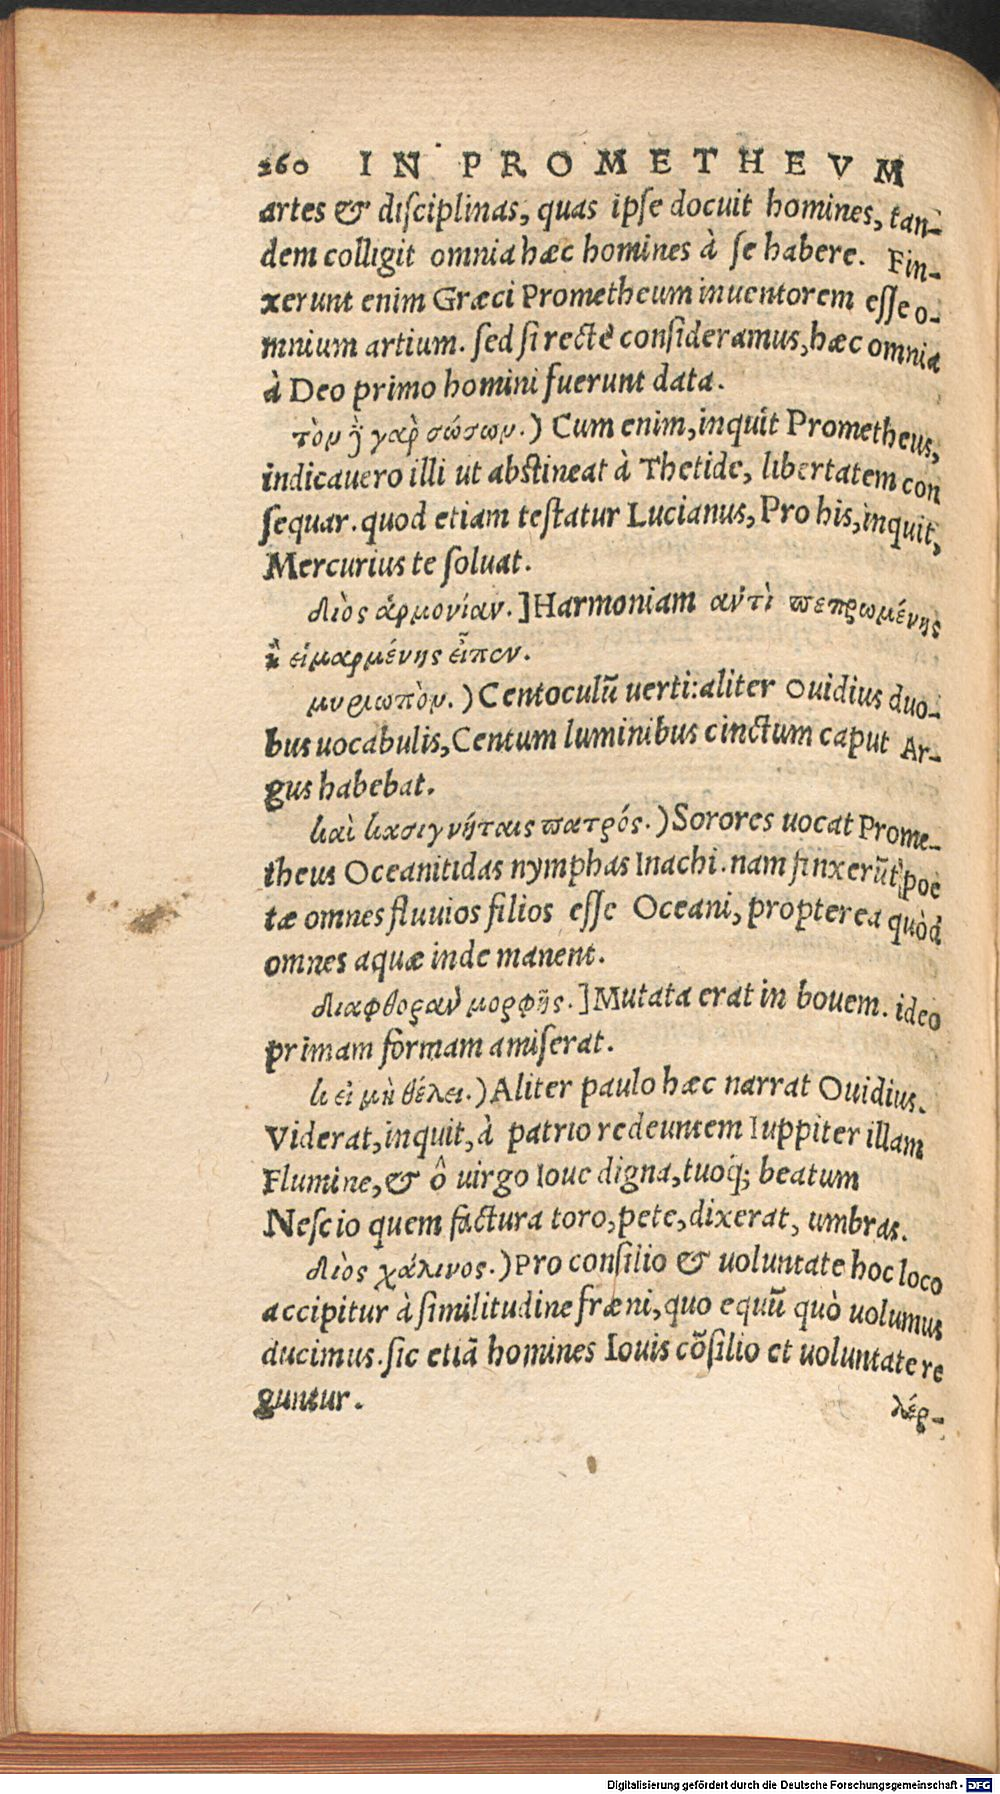 260 IN PROMETHEVM
artes & diſciplinas, quas ipſe docuit homines, tan-
dem colligit omnia hæc homines à ſe habere. Fin-
xerunt enim Græci Prometheum inuentorem eſſe o-
mnium artium. ſed ſi rectè conſideramus, hæc omnia
à Deo primo homini fuerunt data.
γαρ σώσων.) Cum enim, inquit Prometheus,
indicauero illi ut abſtineat à Thetide, libertatem con
ſequar. quod etiam teſtatur Lucianus, Pro his, inquit,
Mercurius te ſoluat.
Διὸς ἁρμονίαν.] Harmoniam αντὶ πεπρωμένης
ἢ εἱμαρμένης εἶπεν.
μυριωπὸν.) Centoculũ uerti: aliter Ouidius duo-
bus uocabulis, Centum luminibus cinctum caput Ar-
gus habebat.
καὶ κασιγνήταις πατρός.) Sorores uocat Prome-
theus Oceanitidas nymphas Inachi. nam finxerũt poë
tæ omnes fluuios filios eſſe Oceani, propterea quòd
omnes aquæ inde manent.
διαφθορὰν μορφῆς.] Mutata erat in bouem. ideo
primam formam amiſerat.
κ εἰ μὴ θέλει.) Aliter paulo hæc narrat Ouidius.
Viderat, inquit, à patrio redeuntem Iuppiter illam
Flumine, & ô uirgo Ioue digna, tuoq́; beatum
Neſcio quem factura toro, pete, dixerat, umbras.
Διὸς χάλινος.) Pro conſilio & uoluntate hoc loco
accipitur à ſimilitudine fræni, quo equũ quò uolumus
ducimus. ſic etiã homines Iouis cõſilio et uoluntate re
guntur.
λέρ-
Digitalisierung gefördert durch die Deutsche Forschungsgemeinschaft - DFG